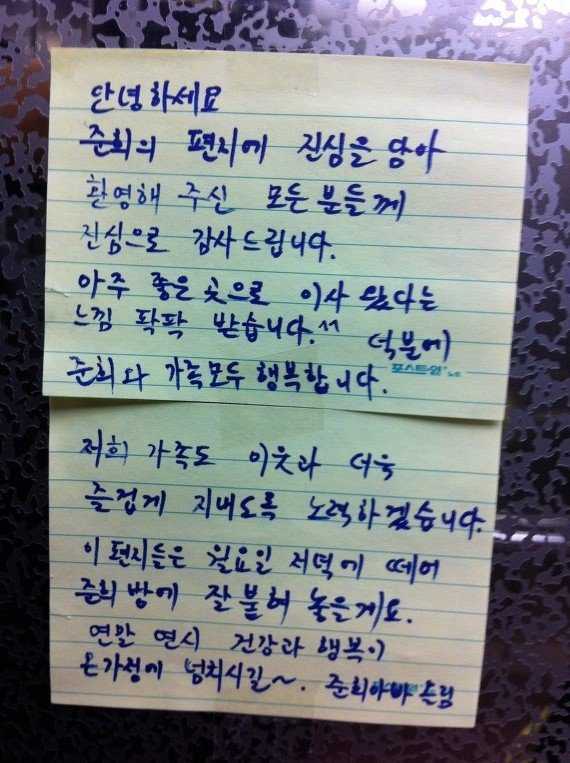 안녕하세요
준희의 편지에 진심을 담아
환영해 주신 모든 분들께
진심으로 감사드립니다.
아주 좋은 곳으로 이사 왔다는
느낌 팍팍 받습니다.^^ 덕분에
준희와 가족모두 행복합니다.
포스트잇
저희 가족도 이웃과 더욱
즐겁게 지내도록 노력하겠습니다.
이 편지들은 월요일 저녁에 떼어
준희 방에 잘 붙혀 놓을게요.
연말 연시 건강과 행복이
온가정에 넘치시길~. 준희아빠 드림